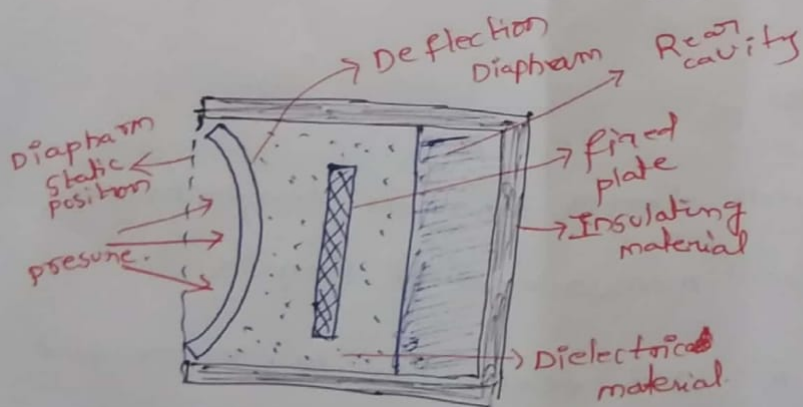 Deflection
Diaphram
Rear
cavity
Diapharm
static
position
fixed
plate
Insulating
material
presure.
Dielectrical
material.